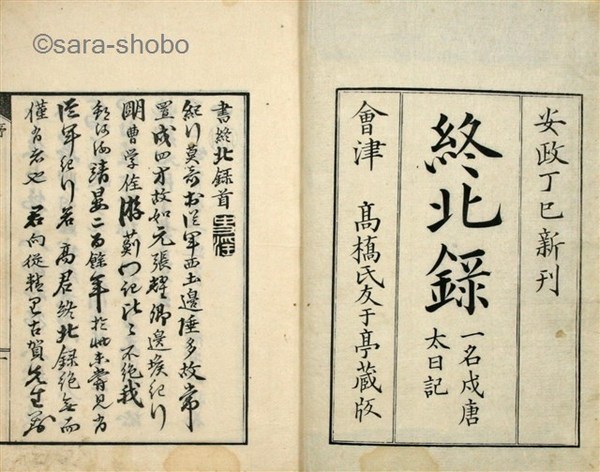 ©sara-shobo
安政丁巳新刊
終北錄
一名戍唐
太日記
會津 髙橋氏友于亭藏版
書終北錄首
紀行莫奇於從軍西土邊陲多故常
置戍四方故如元張耀卿邊堠紀行
明曹学佺游薊門紀比々不絶我
邦河海請晏二百餘年於此未嘗見有
從軍紀行若髙君終北錄絶無而
僅有者也 君向從精里古賀先生
序